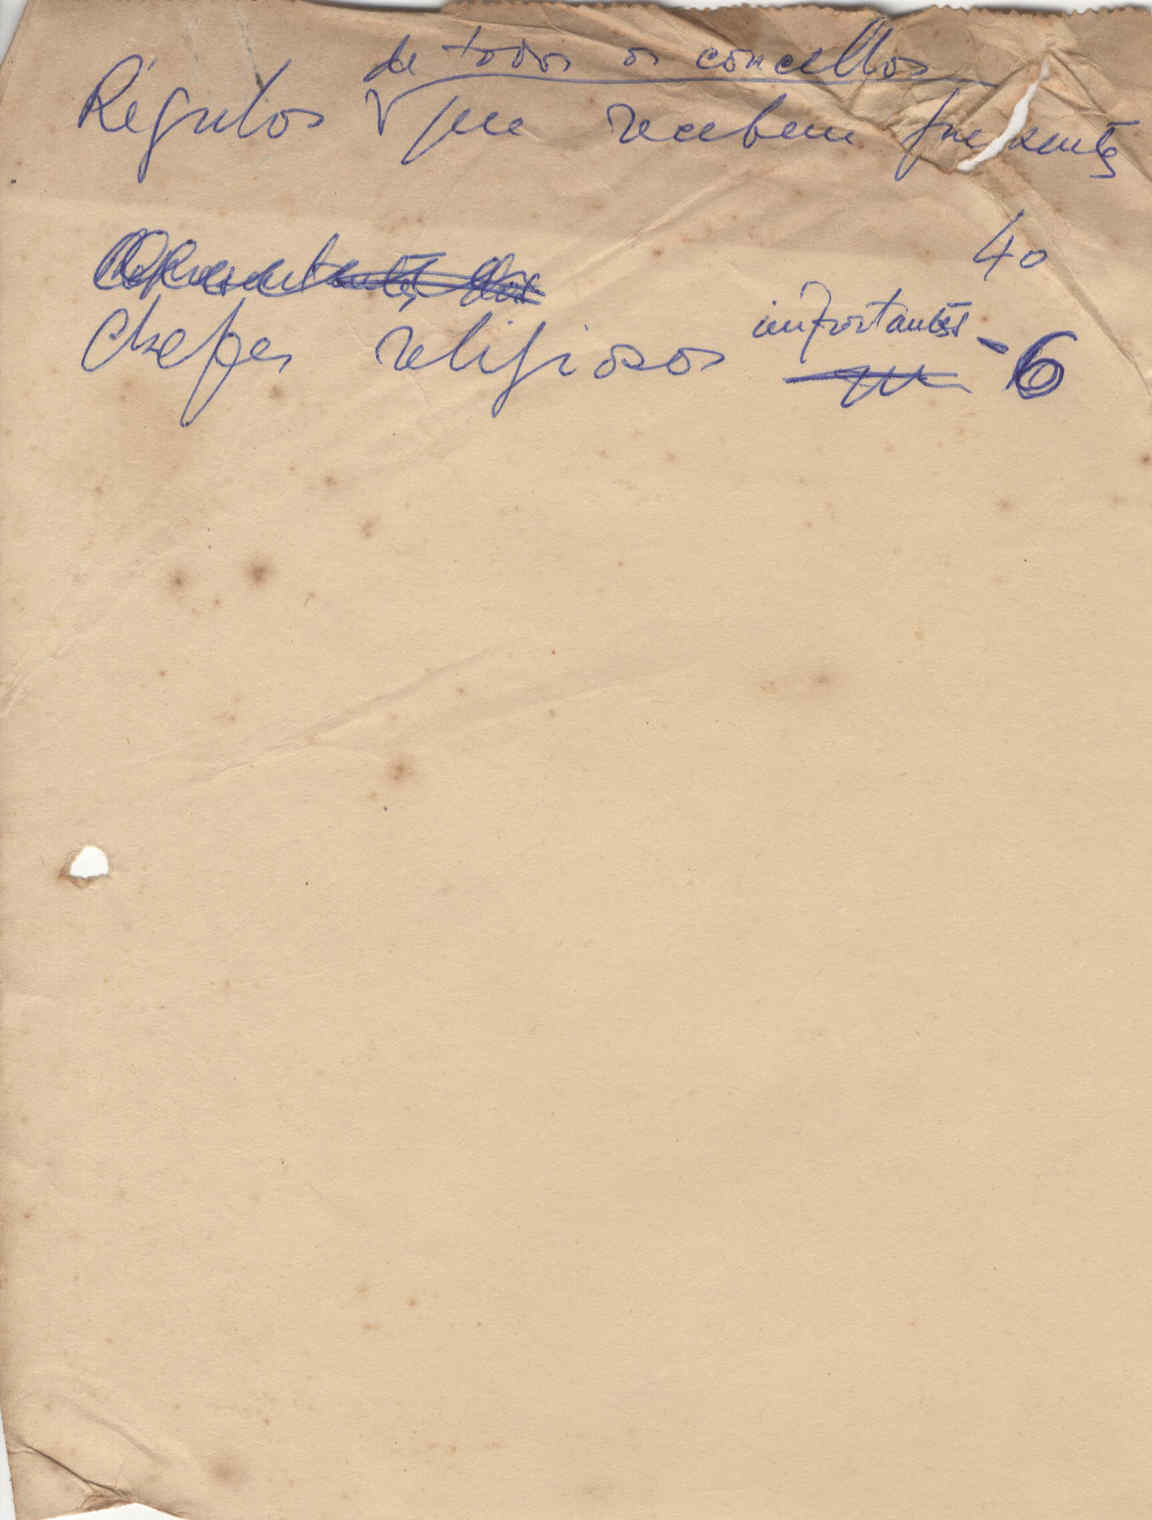 de todos os concelhos
Régulos que recebem presentes
40
Representantes dos
Chefes religiosos importantes - 6